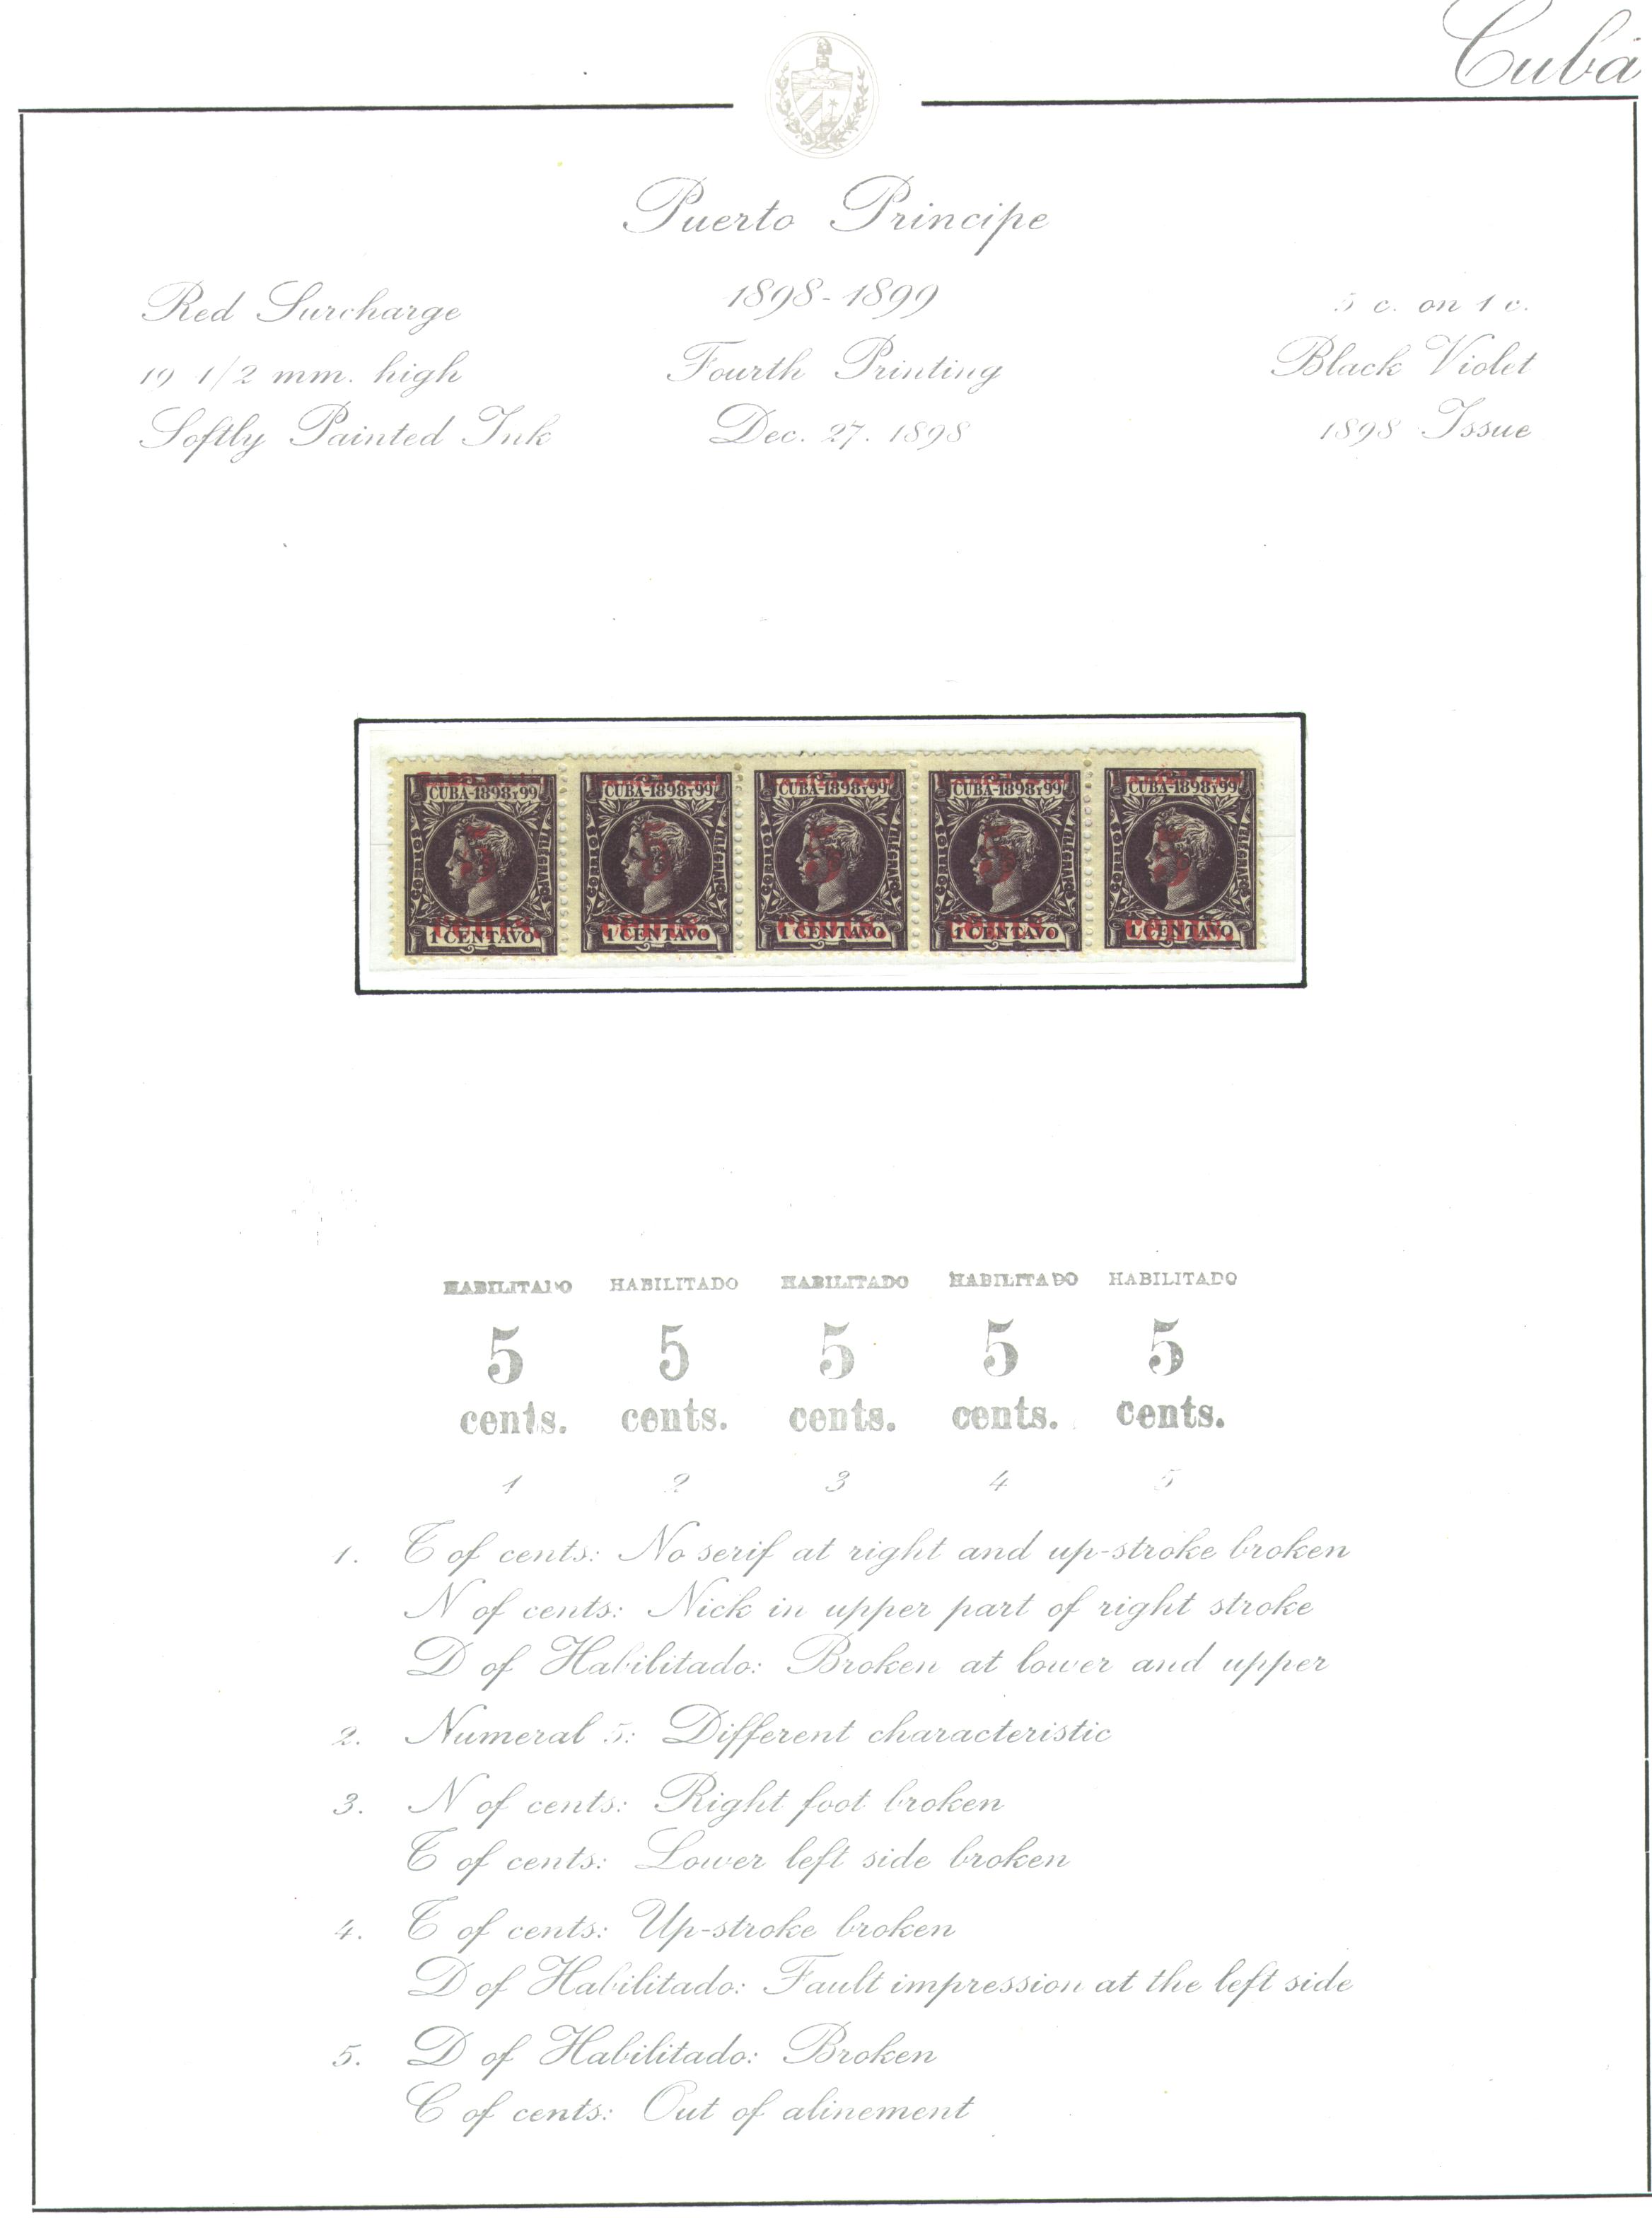 Cubá
Puerto Principe
Red Surcharge
1898-1899
5 c. on 1 c.
19 1/2 mm. high
Fourth Printing
Black Violet
Softly Painted Ink
Dec. 27. 1898
1898 Issue
CUBA-1898Y99 CUBA-1898Y99 CUBA-1898Y99 CUBA-1898Y99 CUBA-1898Y99
5 5 5 5 5
cents. cents. cents. cents. cents.
1 CENTAVO 1 CENTAVO 1 CENTAVO 1 CENTAVO 1 CENTAVO
HABILITADO HABILITADO HABILITADO HABILITADO HABILITADO
5 5 5 5 5
cents. cents. cents. cents. cents.
1 2 3 4 5
1. T of cents: No serif at right and up-stroke broken
N of cents: Nick in upper part of right stroke
D of Habilitado: Broken at lower and upper
2. Numeral 5: Different characteristic
3. N of cents: Right foot broken
T of cents: Lower left side broken
4. T of cents: Up-stroke broken
D of Habilitado: Fault impression at the left side
5. D of Habilitado: Broken
C of cents: Out of alinement